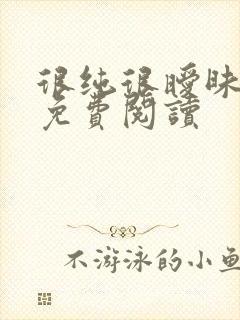 很纯很暧昧
免費閱讀
不游泳的小鱼